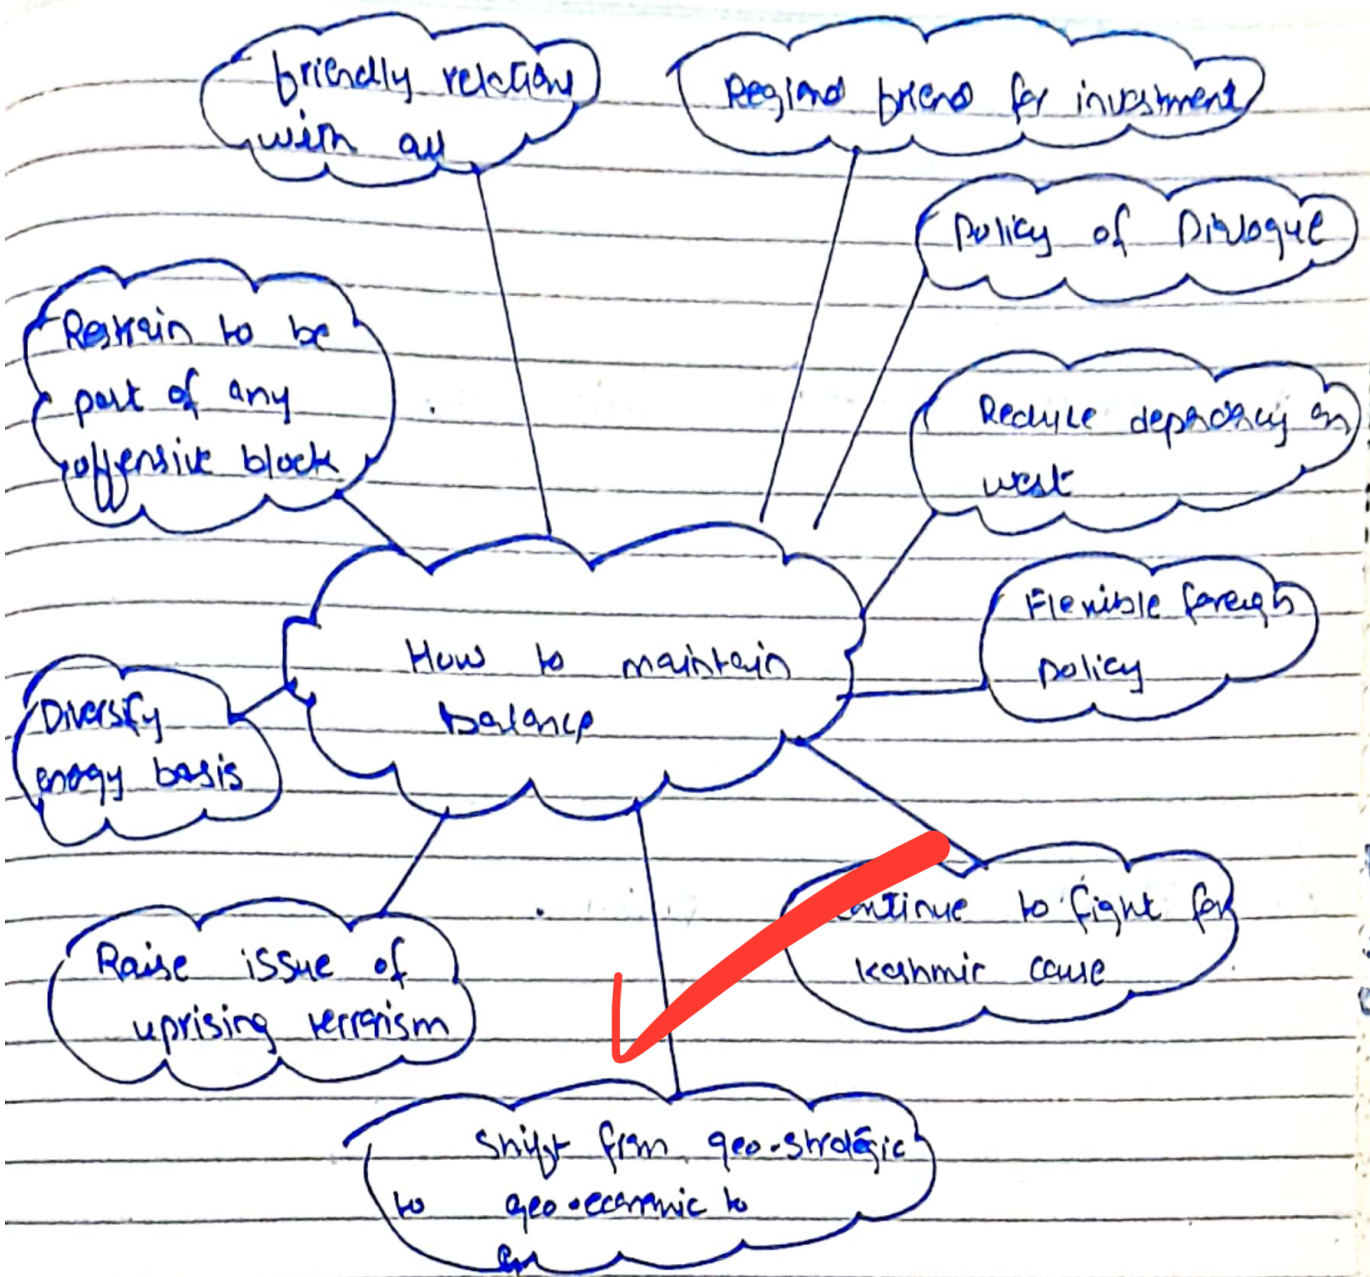 friendly relations
with all
Regional friend for investment
Policy of Dialogue
Restrain to be
part of any
offensive block
Reduce depndency on
west
Flexible foreign
policy
How to maintain
balance
Diversify
enegy basis
Continue to fight for
Kashmir cause
Raise issue of
uprising terrorism
Shift from geo-strategic
to geo-economic to